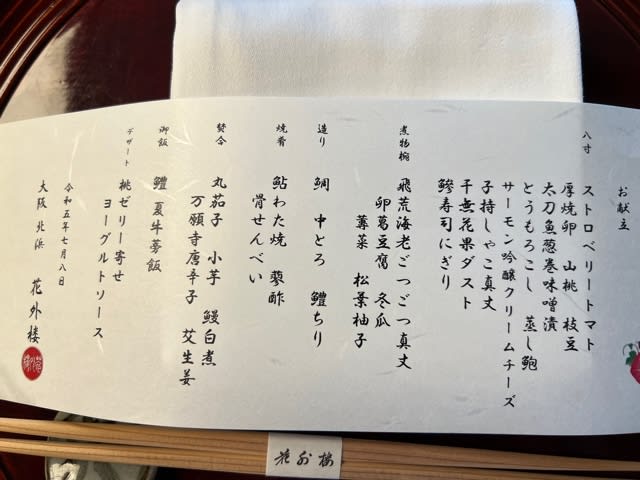 お献立
八寸 ストロベリートマト
厚焼卵 山桃 枝豆
太刀魚葱巻味噌漬
とうもろこし 蒸し鮑
サーモン吟醸クリームチーズ
子持しゃこ真丈
干無花果ダスト
鯵寿司にぎり
煮物椀 飛荒海老ごつごつ真丈
卵葛豆腐 冬瓜
蓴菜 松葉柚子
造り 鯛 中とろ 鱧ちり
焼肴 鮎わた焼 蓼酢
骨せんべい
焚合 丸茄子 小芋 鰻白煮
万願寺唐辛子 艾生姜
御飯 鱧 夏牛蒡飯
デザート 桃ゼリー寄せ
ヨーグルトソース
令和五年七月八日
大阪 北浜 花外楼
花外楼